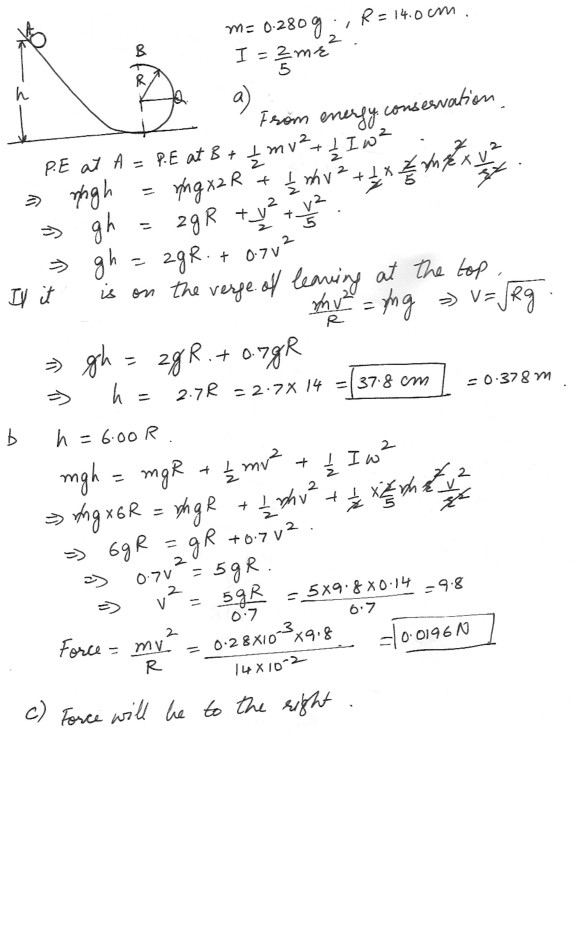 m = 0.280 g ., R = 14.0 cm .
I = 2/5 m r² .
A
h
B
R
Q
a) From energy conservation .
P.E at A = P.E at B + 1/2 mv² + 1/2 Iω²
⇒ mgh = mg×2R + 1/2 mv² + 1/2 × 2/5 m r² × v²/r² .
⇒ gh = 2gR + v²/2 + v²/5 .
⇒ gh = 2gR . + 0.7v²
If it is on the verge of leaving at the top .
mv²/R = mg ⇒ V = √Rg .
⇒ gh = 2gR . + 0.7gR
⇒ h = 2.7R = 2.7 × 14 = 37.8 cm = 0.378 m .
b h = 6.00 R .
mgh = mgR + 1/2 mv² + 1/2 Iω²
⇒ mg×6R = mgR + 1/2 mv² + 1/2 × 2/5 m r² v²/r²
⇒ 6gR = gR + 0.7v² .
⇒ 0.7v² = 5gR .
⇒ v² = 5gR/0.7 = 5×9.8×0.14/0.7 = 9.8
Force = mv²/R = 0.28×10⁻³×9.8/14×10⁻² = 0.0196 N
c) Force will be to the right .